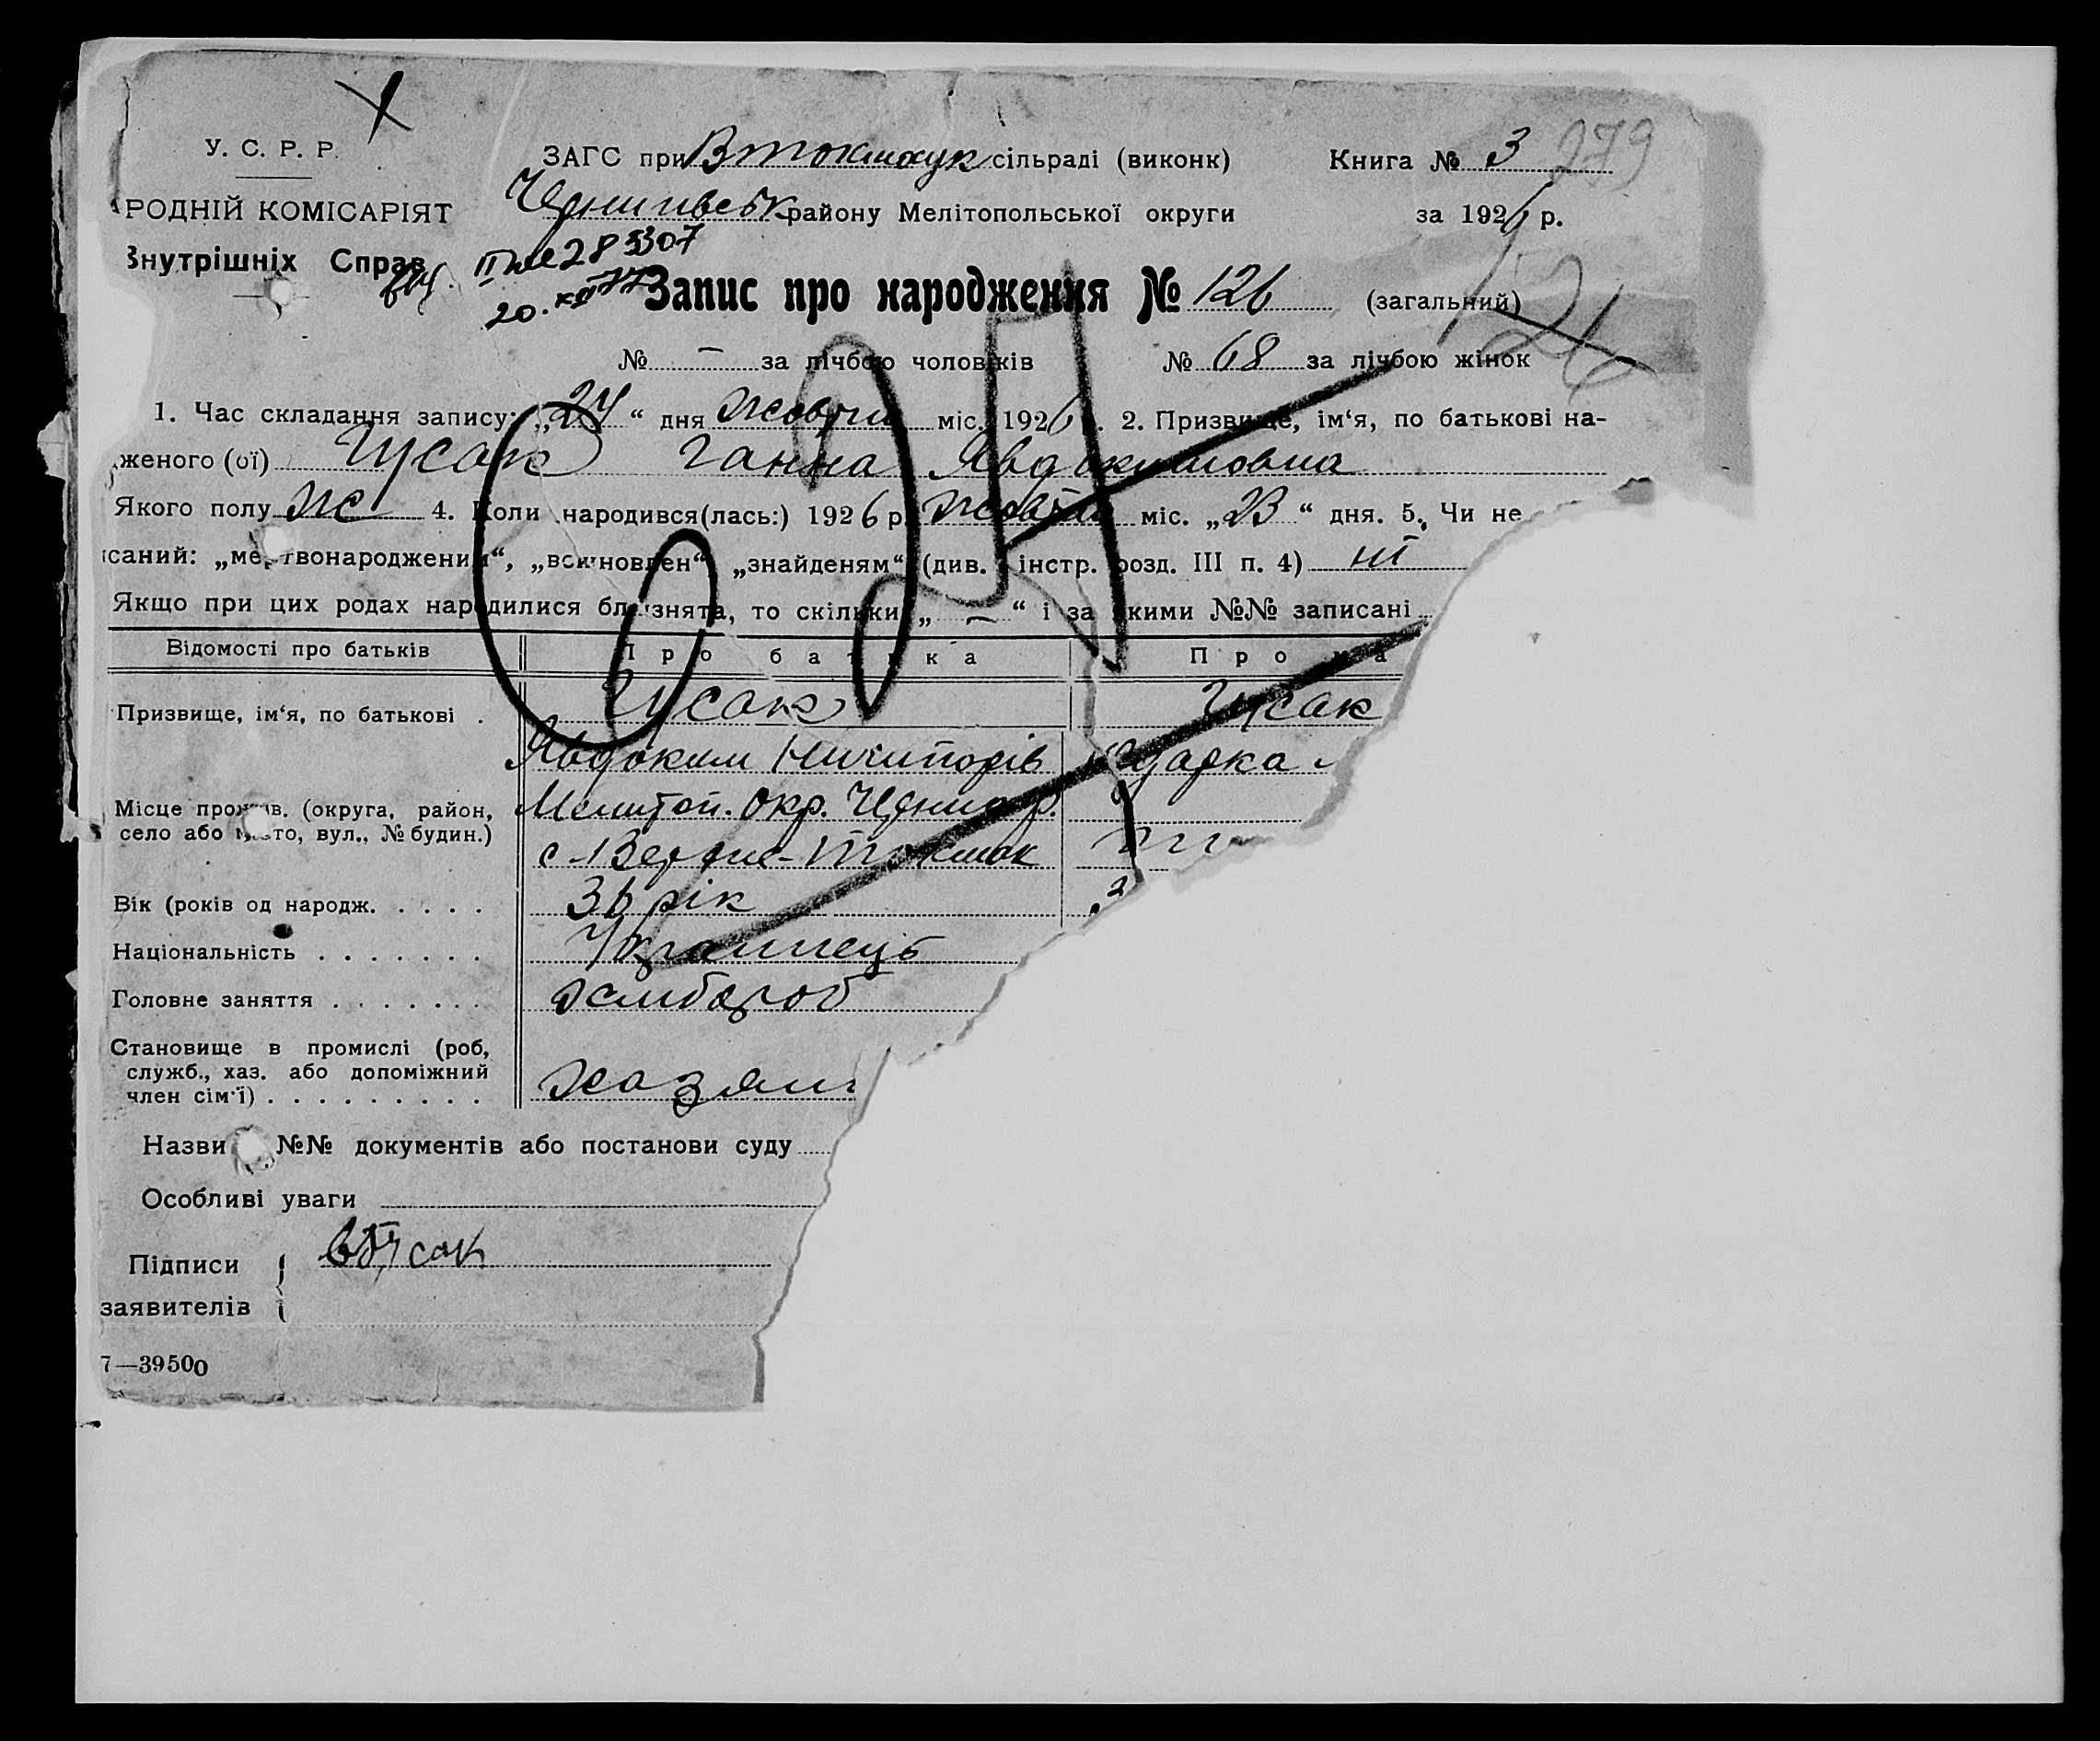 У. С. Р. Р.
РОДНІЙ КОМІСАРІЯТ
Внутрішніх Справ
ЗАГС при Втокмакук сільраді (виконк) Книга № 3 279
Чернигівськ району Мелітопольської округи за 1926 р.
283307
20. XII 77
Запис про народження № 126 (загальний)
№ – за лічбою чоловіків № 68 за лічбою жінок
1. Час складання запису: „24“ дня Жовтн міс. 1926 р. 2. Призвище, ім‘я, по батькові на-
женого (ої) Гусак Ганна Явдокимовна
Якого полу Ж 4. Коли народився(лась:) 1926 р. Жовтн міс. „23“ дня. 5. Чи не
саний: „мертвонароджений“, „всиновлен“, „знайденям“ (див. інстр. розд. III п. 4) ні
Якщо при цих родах народилися близнята, то скільки „ — “ і за якими №№ записані
Відомості про батьків Про батька Про ма
Призвище, ім‘я, по батькові . Гусак Гусак
Явдоким Ничипорів Одарка
Місце прожив. (округа, район, Мелитоп. Окр. Черниг р.
село або місто, вул., № будин.) с Верхне-Токмак
Вік (років од народж. . . . . 36 рік
Національність . . . . . . . Українець
Головне заняття . . . . . . . Хлибороб
Становище в промислі (роб,
служб., хаз. або допоміжний
член сім‘ї) . . . . . . . . . Хазяин
Назви №№ документів або постанови суду
Особливі уваги
Підписи Гусак
заявителів
7—39500